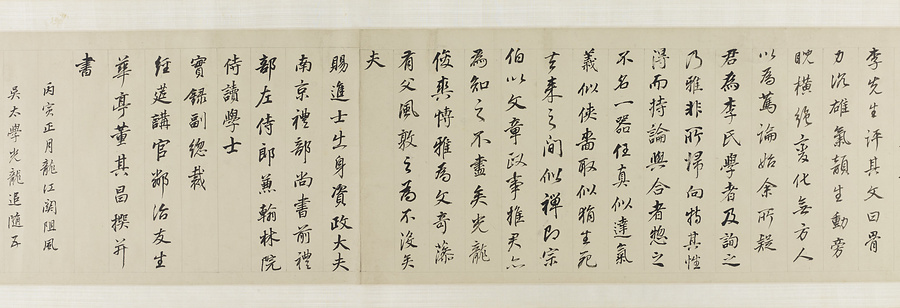 李先生評其文曰骨
力沉雄氣韻生動旁
睨橫絕變化無方人
以為篤論始余所疑
君為李氏學者及詢之
乃雅非所歸向特其性
得而持論與合者惣之
不名一器任真似達氣
義似俠嗇取似狷生死
去來之間似禪即宗
伯以文章政事推君亦
為知之不盡矣光龍
俊爽博雅為文奇藻
有父風敦之為不沒矣
夫
賜進士出身資政大夫
南京禮部尚書前禮
部左侍郎兼翰林院
侍讀學士
實錄副總裁
經筵講官鄰治友生
華亭董其昌撰并
書
丙寅正月龍江關阻風
吳太學光龍追隨至